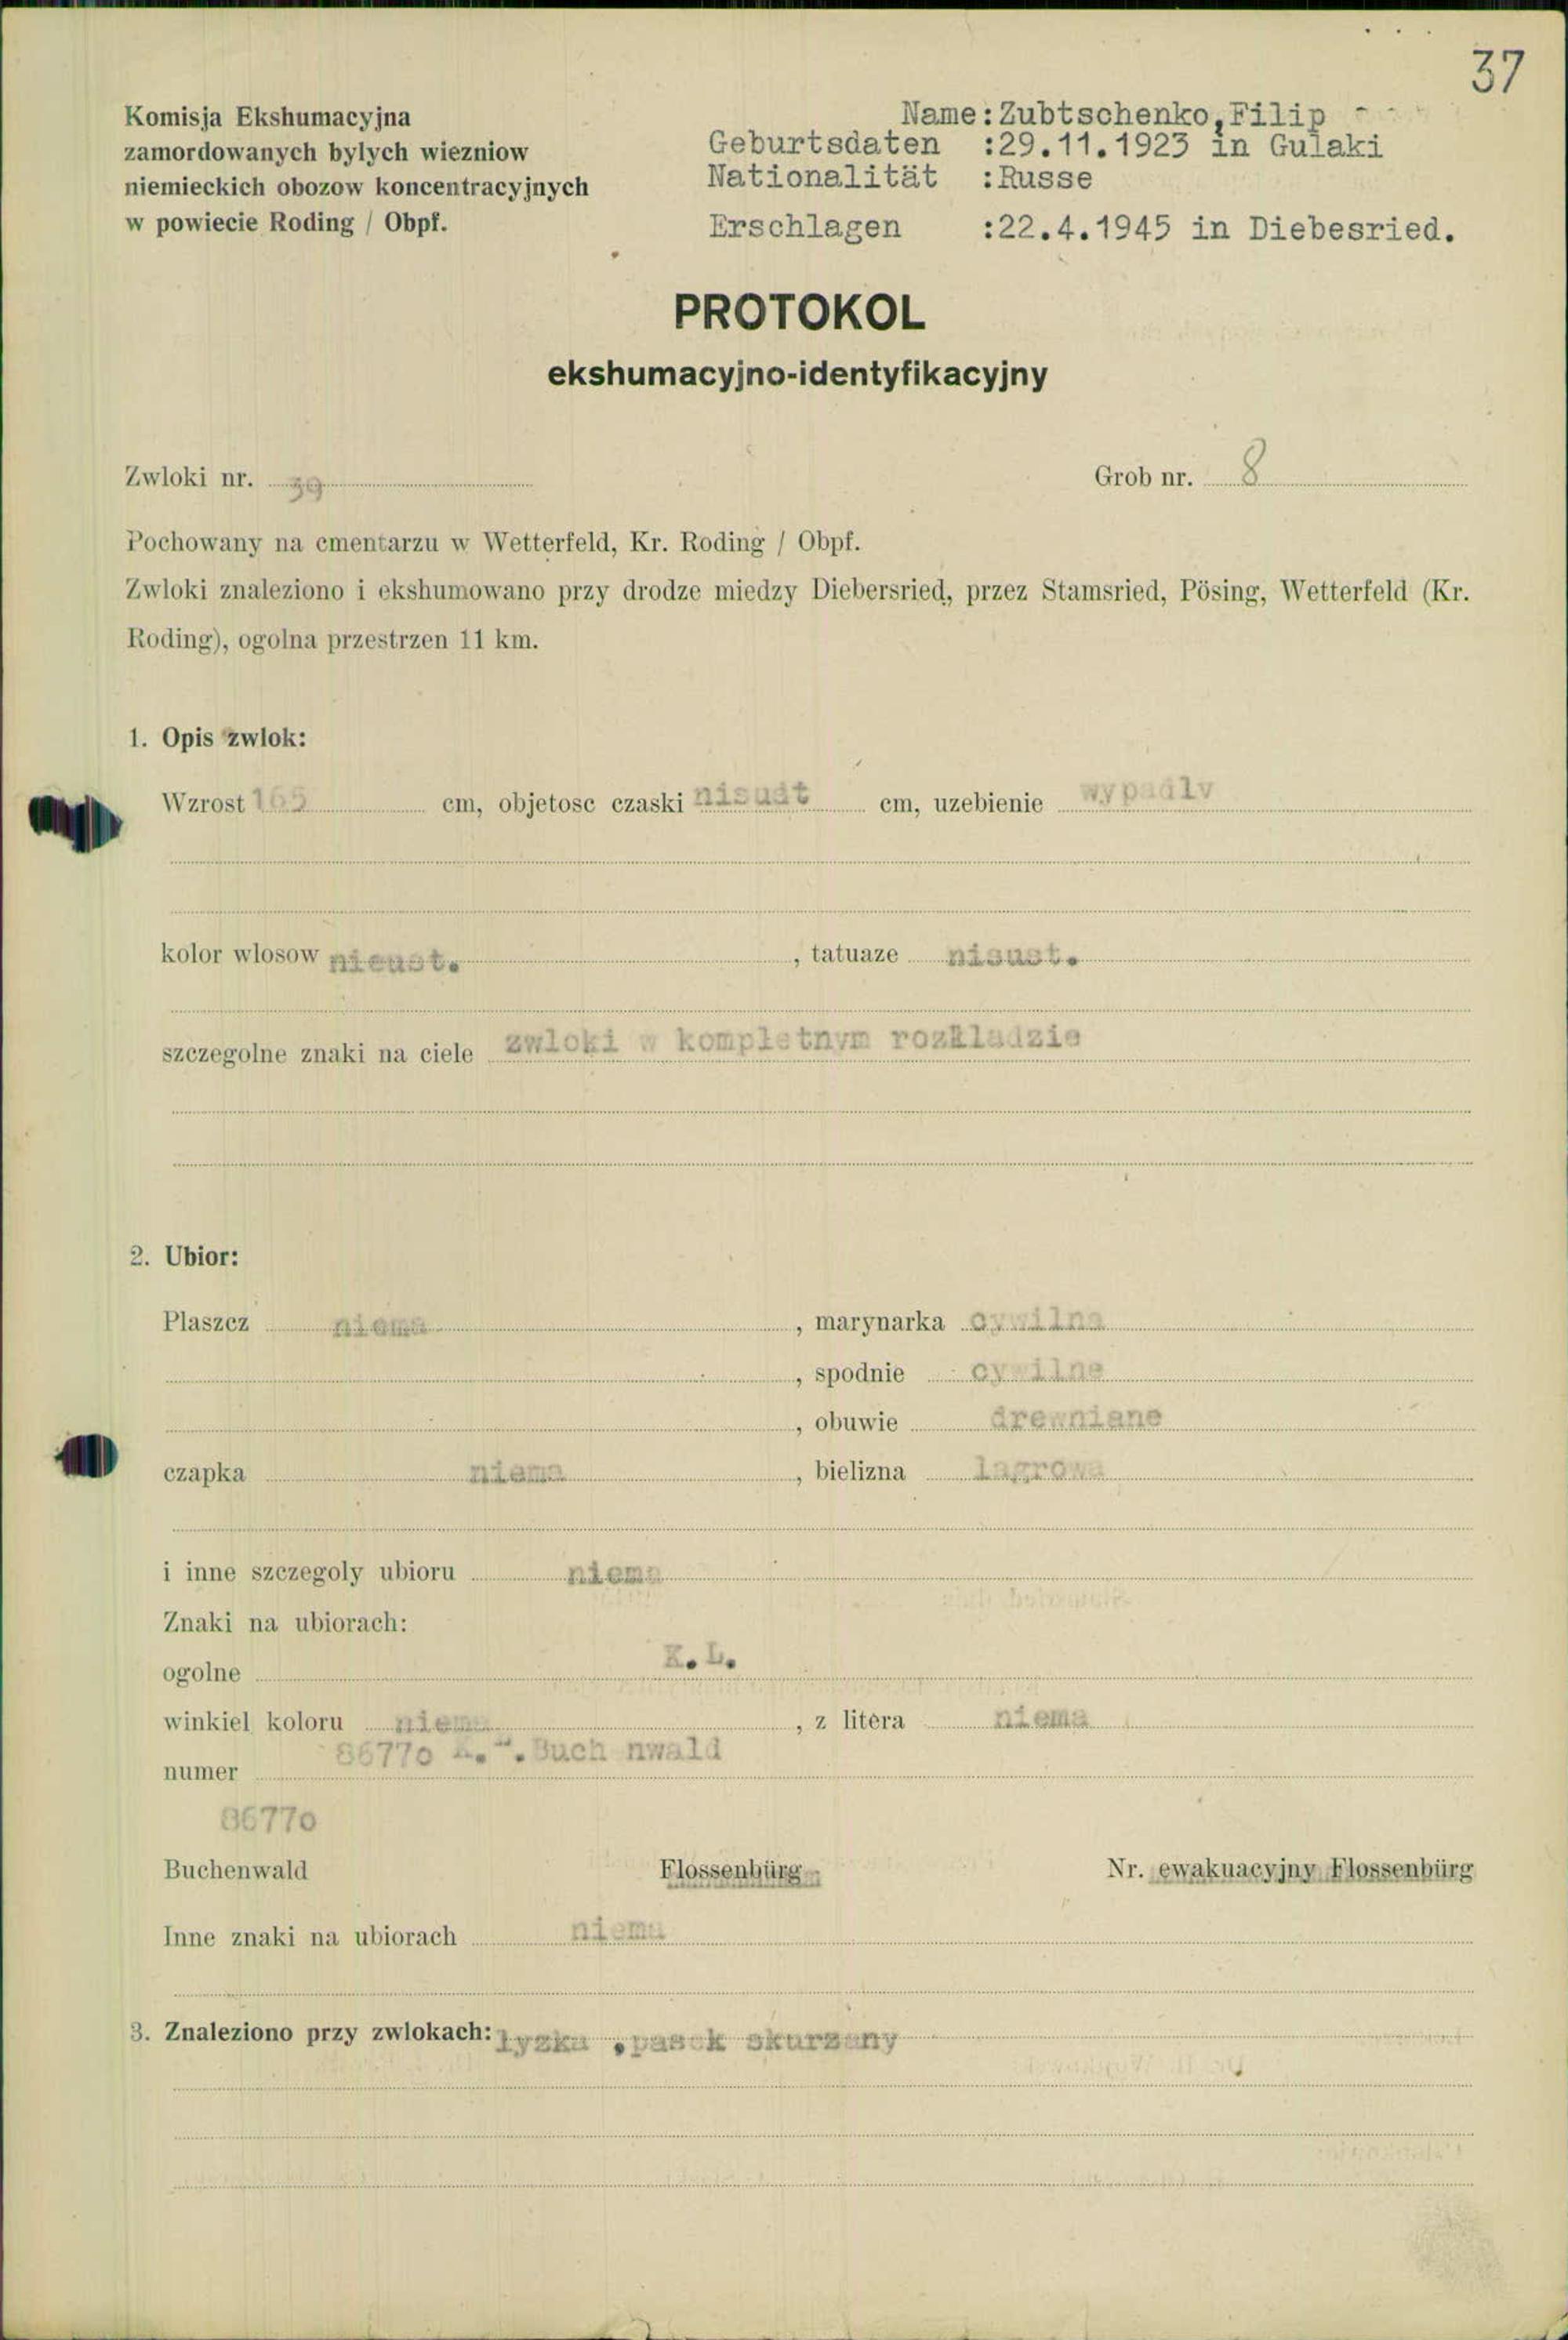 37
Komisja Ekshumacyjna
zamordowanych bylych wiezniow
niemieckich obozow koncentracyjnych
w powiecie Roding / Obpf.
Name:Zubtschenko,Filip
Geburtsdaten :29.11.1923 in Gulaki
Nationalität :Russe
Erschlagen :22.4.1945 in Diebesried.
PROTOKOL
ekshumacyjno-identyfikacyjny
Zwloki nr. 39 Grob nr. 8
Pochowany na cmentarzu w Wetterfeld, Kr. Roding / Obpf.
Zwloki znaleziono i ekshumowano przy drodze miedzy Diebersried, przez Stamsried, Pösing, Wetterfeld (Kr.
Roding), ogolna przestrzen 11 km.
1. Opis zwlok:
Wzrost 165 cm, objetosc czaski cm, uzebienie wypadly
kolor wlosow nieust. , tatuaze nieust.
szczegolne znaki na ciele zwloki w kompletnym rozkladzie
2. Ubior:
Plaszcz niema , marynarka cywilna
, spodnie cywilne
, obuwie drewniane
czapka niema , bielizna lagrowa
i inne szczegoly ubioru niema
Znaki na ubiorach:
ogolne K.L.
winkiel koloru niema , z litera niema
numer 86770 K.L. Buchenwald
86770
Buchenwald Flossenbürg Nr. ewakuacyjny Flossenbürg
Inne znaki na ubiorach niema
3. Znaleziono przy zwlokach: lyzka ,pasek skurzany